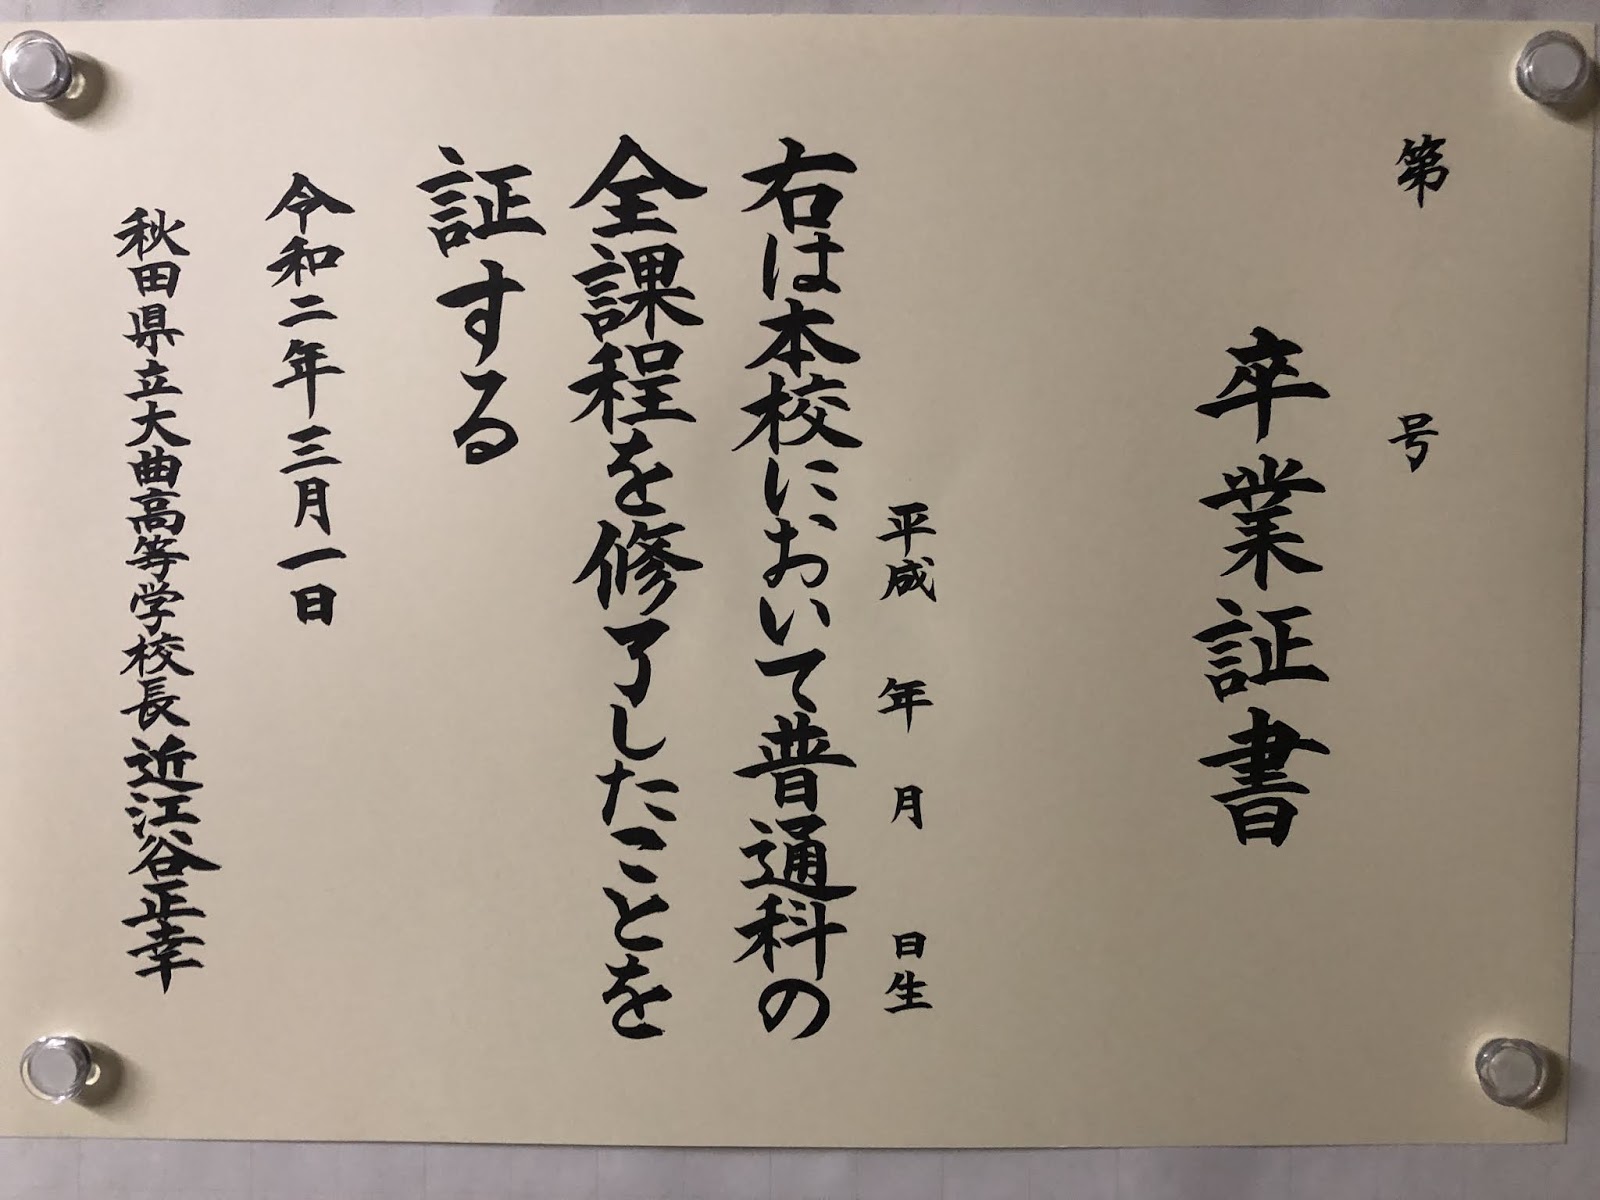 第　号
卒業証書
平成　年　月　日生
右は本校において普通科の
全課程を修了したことを
証する
令和二年三月一日
秋田県立大曲高等学校長 近江谷正幸